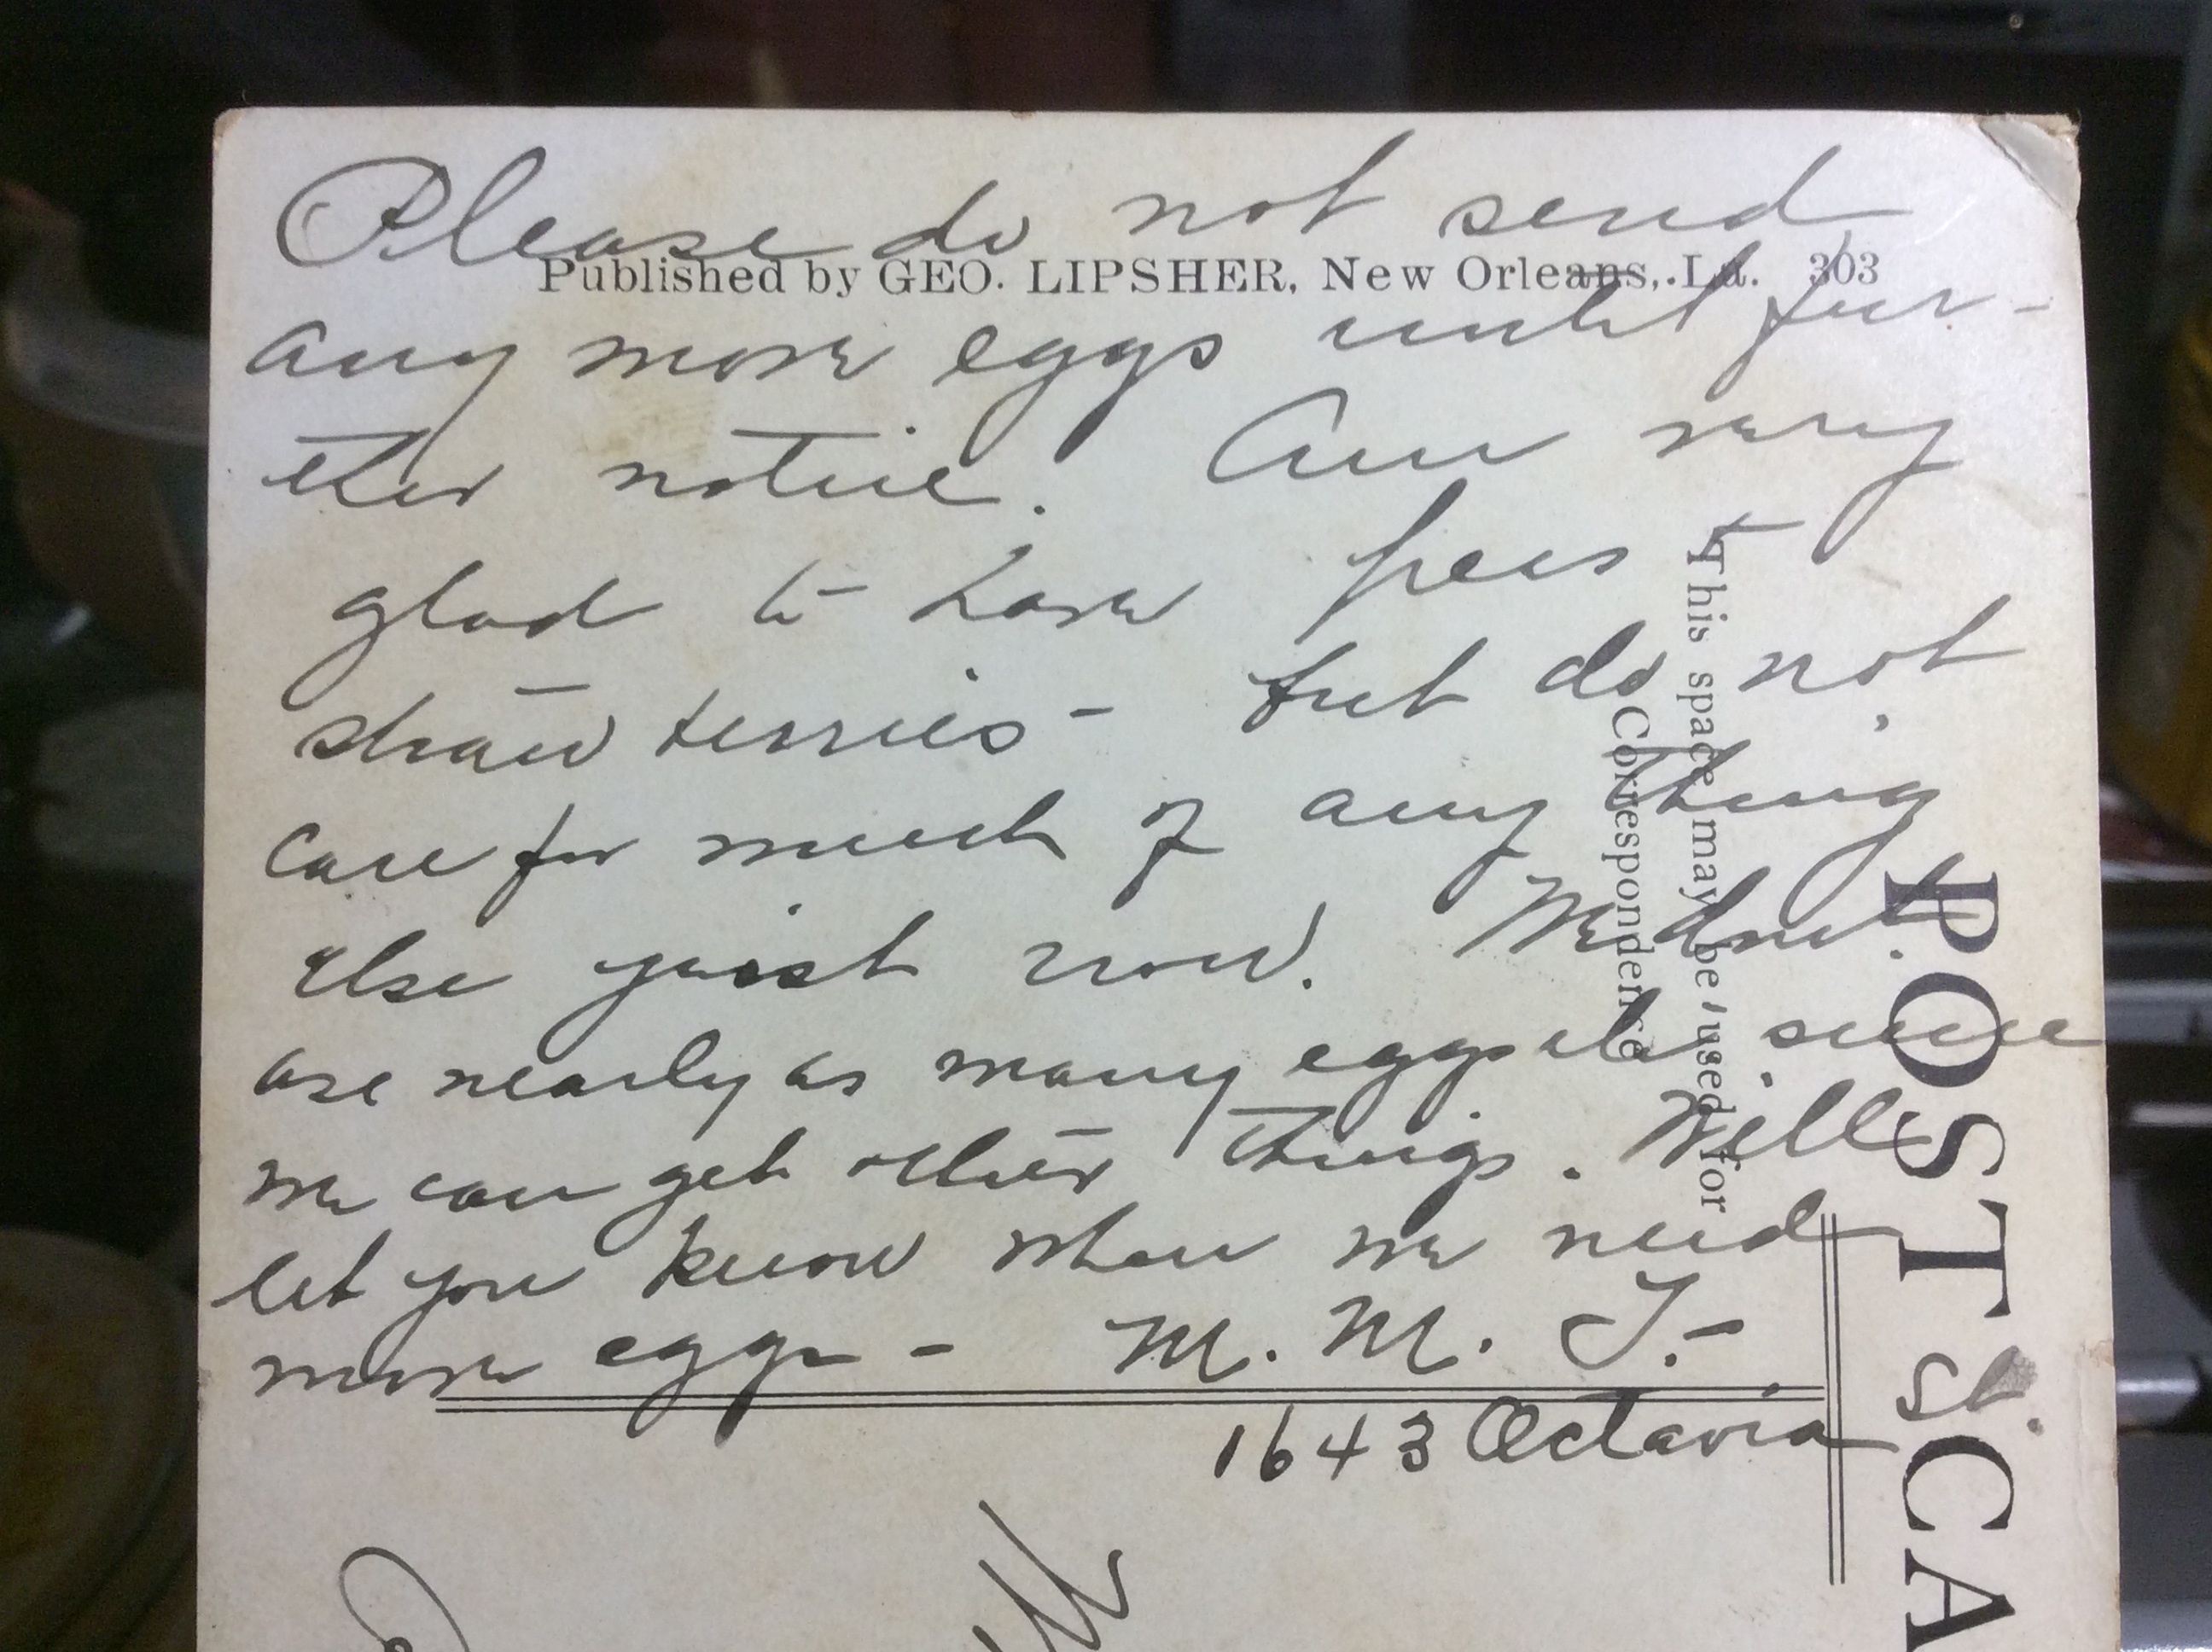 Please do not send
Published by GEO. LIPSHER, New Orleans, La. 303
any more eggs until fur-
ther notice. Am very
glad to have peas &
straw berries - but do not
care for much of any thing
else just now. We dont
use nearly as many eggs when since
we can get other things. Will
let you know when we need
more eggs - M. M. T. -
1643 Octavia St.
This space may be used for
Correspondence
POST CA